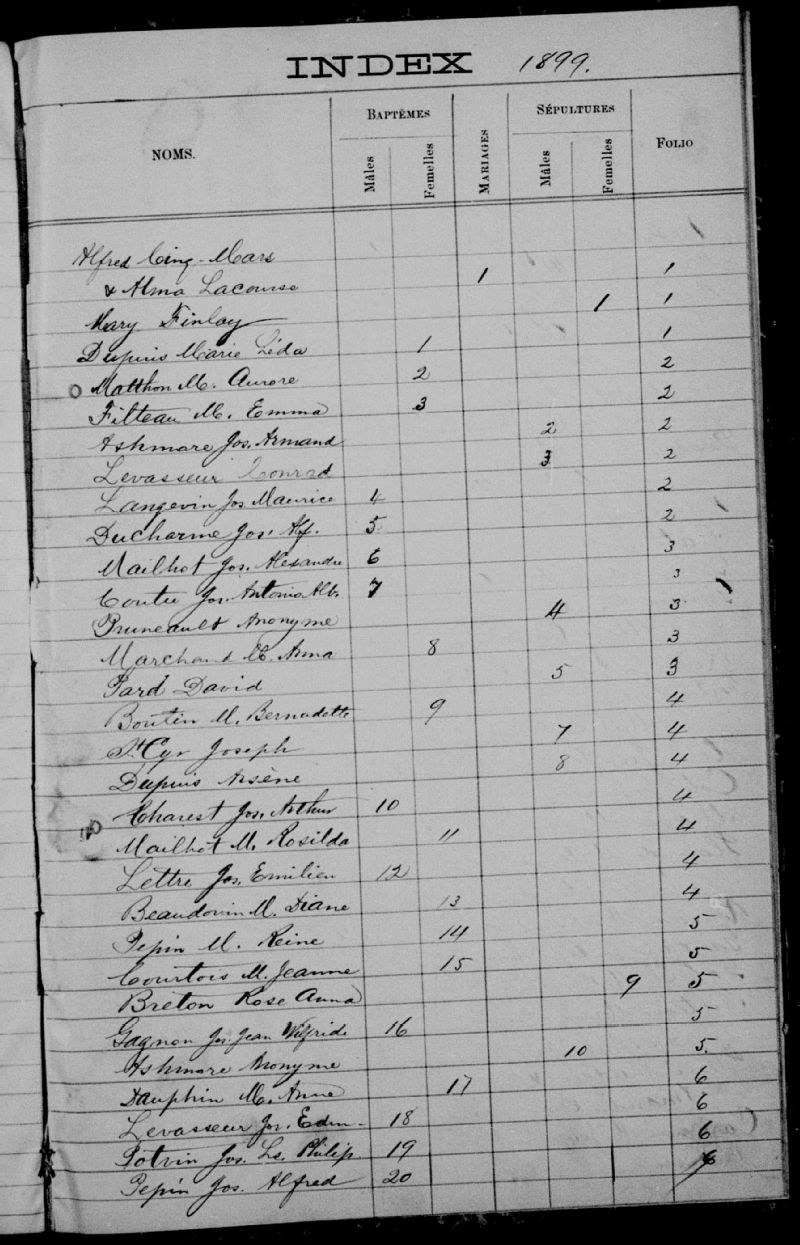 INDEX 1899.
NOMS. BAPTÊMES MARIAGES SÉPULTURES FOLIO
Mâles Femelles Mâles Femelles
Alfred Cinq-Mars
& Alma Lacourse 1 1
Mary Finlay 1 1
Dupuis Marie Léda 1 1
Matthon M. Aurore 2 2
Filteau M. Emma 3 2
Ashmore Jos. Armand 2 2
Levasseur Conrad 3 2
Langevin Jos Maurice 4 2
Ducharme Jos. Alf. 5 2
Mailhot Jos. Alexandre 6 3
Coutu Jos. Antonio Alb. 7 3
Pruneault Anonyme 4 3
Marchand M. Anna 8 3
Pard David 5 3
Boutin M. Bernadette 9 4
St Cyr Joseph 7 4
Dupuis Arsène 8 4
Charest Jos. Arthur 10 4
Mailhot M. Rosilda 11 4
Lettre Jos. Emilien 12 4
Beaudoin M. Diane 13 4
Pepin M. Reine 14 5
Courtois M. Jeanne 15 5
Breton Rose Anna 9 5
Gagnon Jos. Jean Wilfride 16 5
Ashmore Anonyme 10 5.
Dauphin M. Anne 17 6
Levasseur Jos. Edm- 18 6
Potvin Jos. Ls. Philip 19 6
Pepin Jos. Alfred 20 6